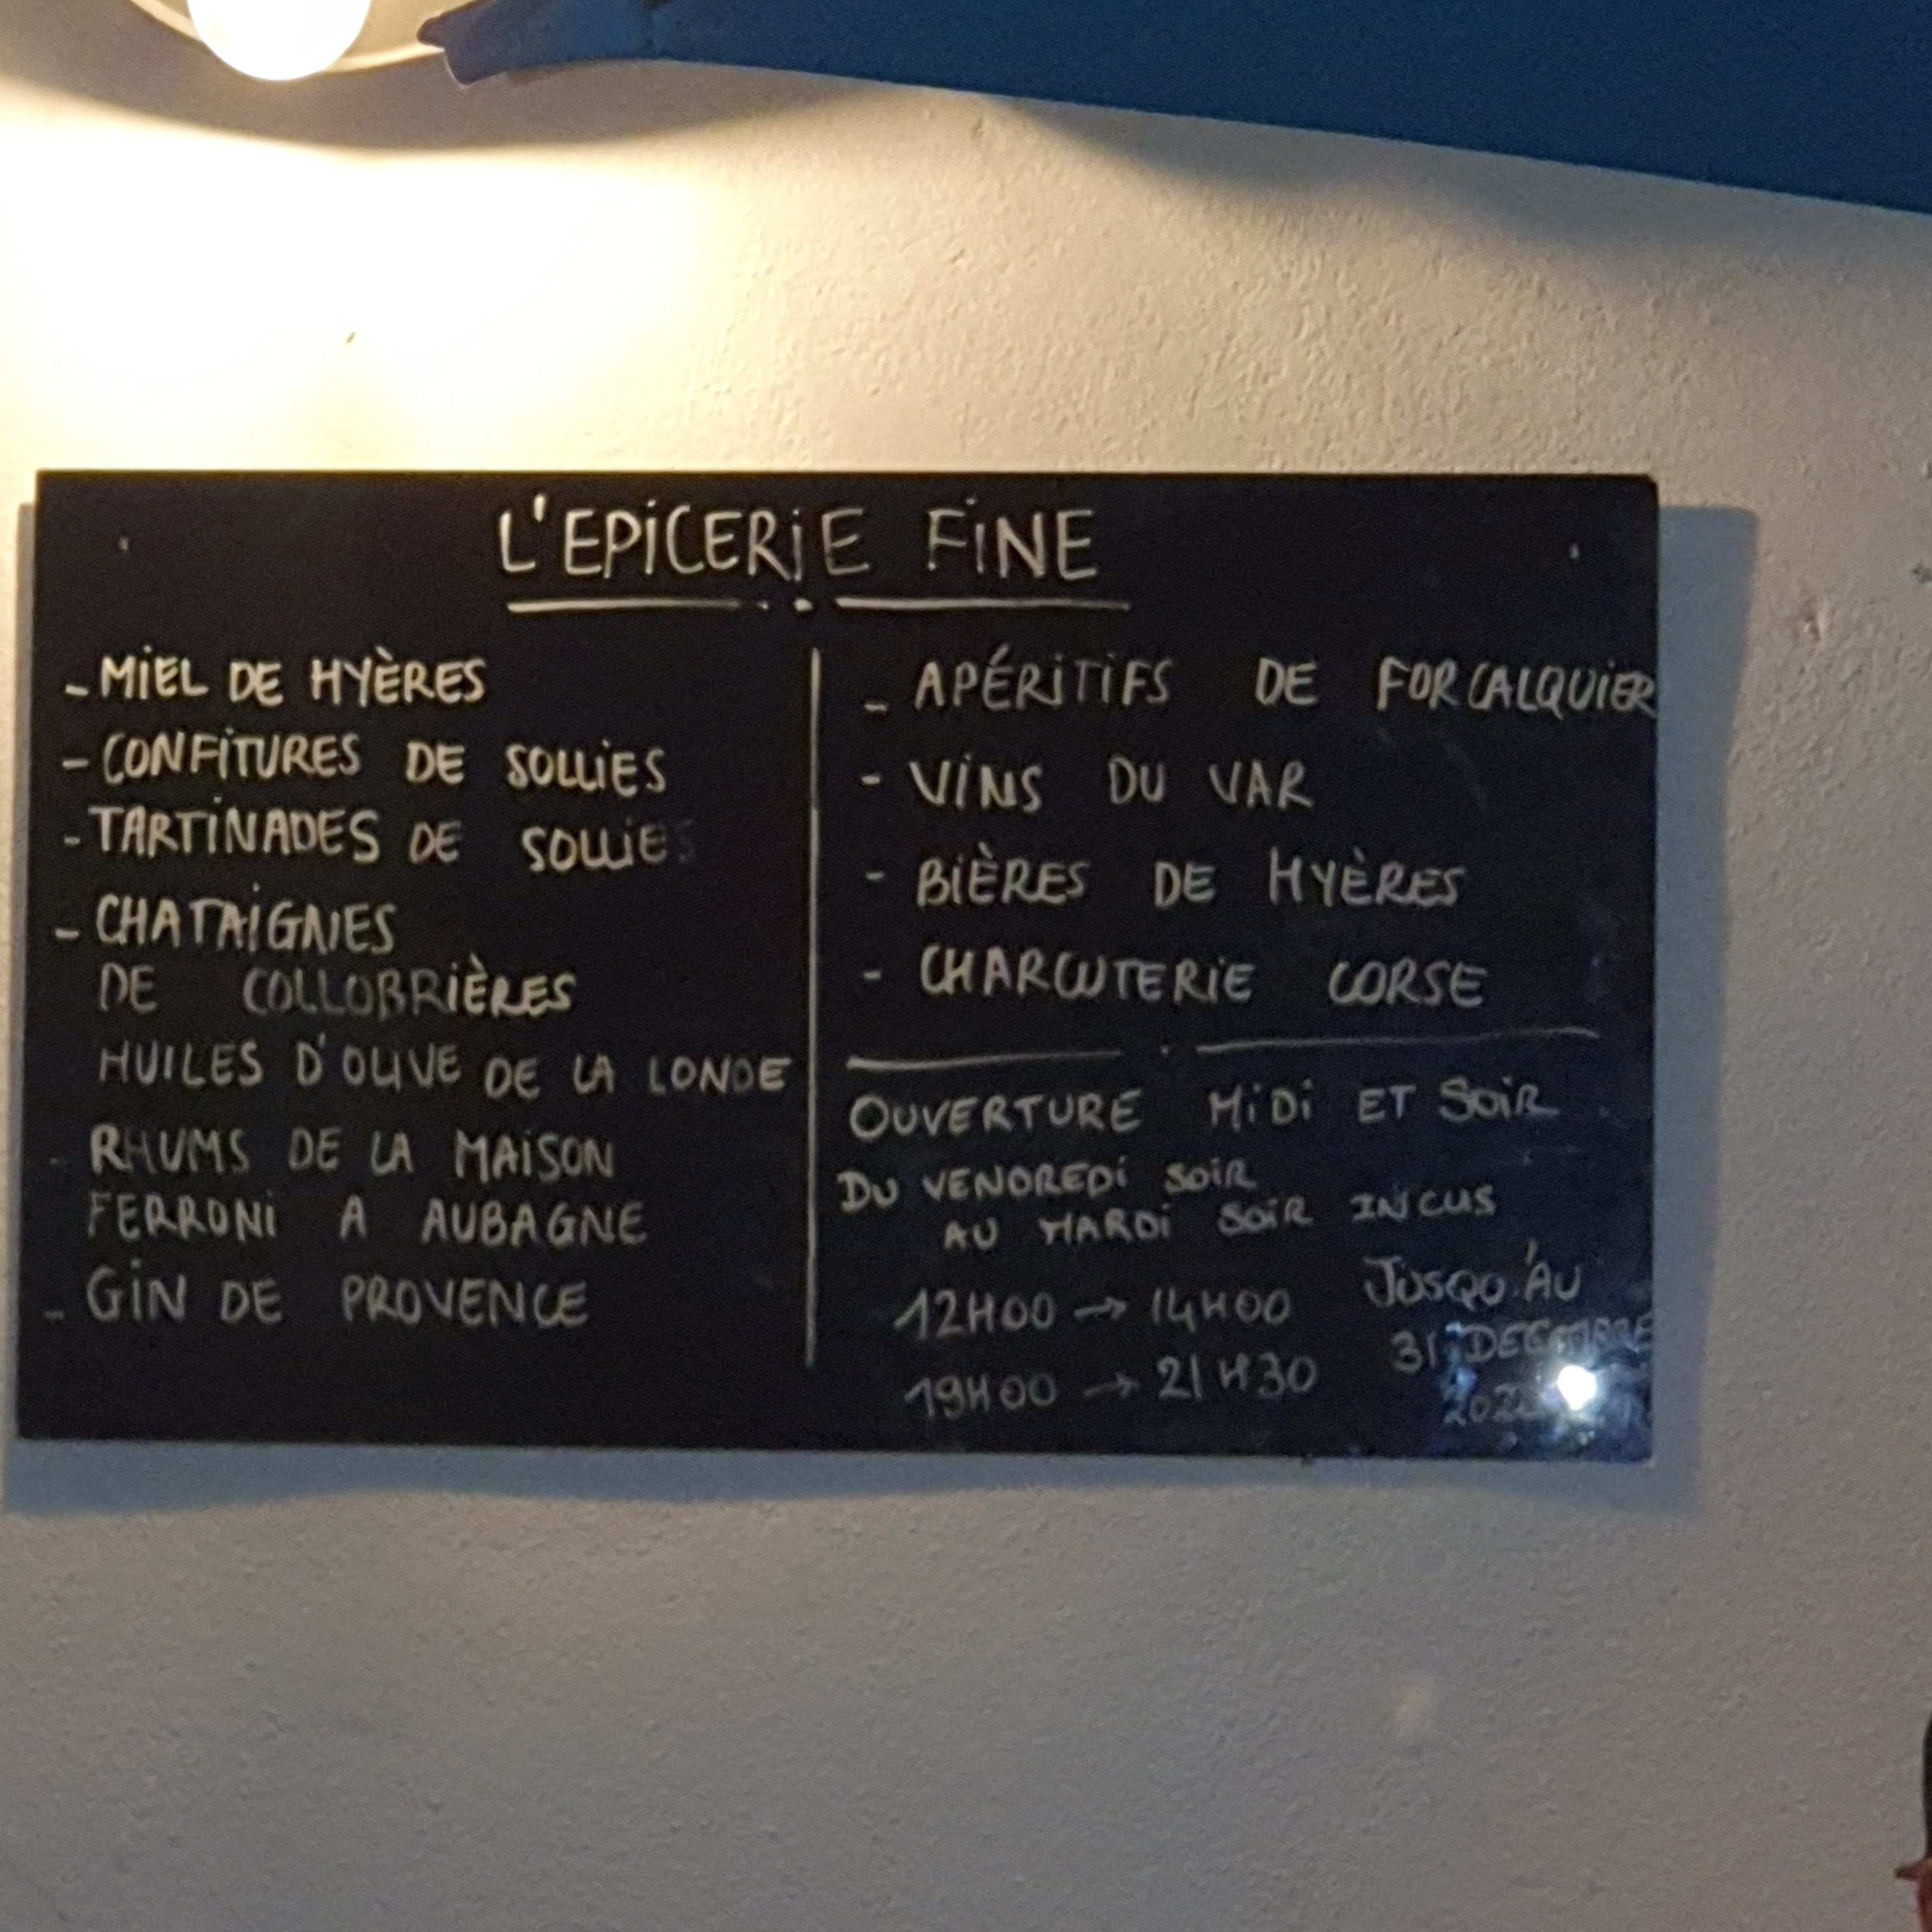 L'EPICERIE FINE
- MIEL DE HYÈRES
- CONFITURES DE SOLLIES
- TARTINADES DE SOLLIES
- CHATAIGNES
DE COLLOBRIÈRES
HUILES D'OLIVE DE LA LONDE
- RHUMS DE LA MAISON
FERRONI A AUBAGNE
- GIN DE PROVENCE
- APÉRITIFS DE FORCALQUIER
- VINS DU VAR
- BIÈRES DE HYÈRES
- CHARCUTERIE CORSE
OUVERTURE MIDI ET SOIR
DU VENDREDI SOIR
AU MARDI SOIR INCLUS
12H00 → 14H00
19H00 → 21H30
JUSQU'AU
31 DECEMBRE